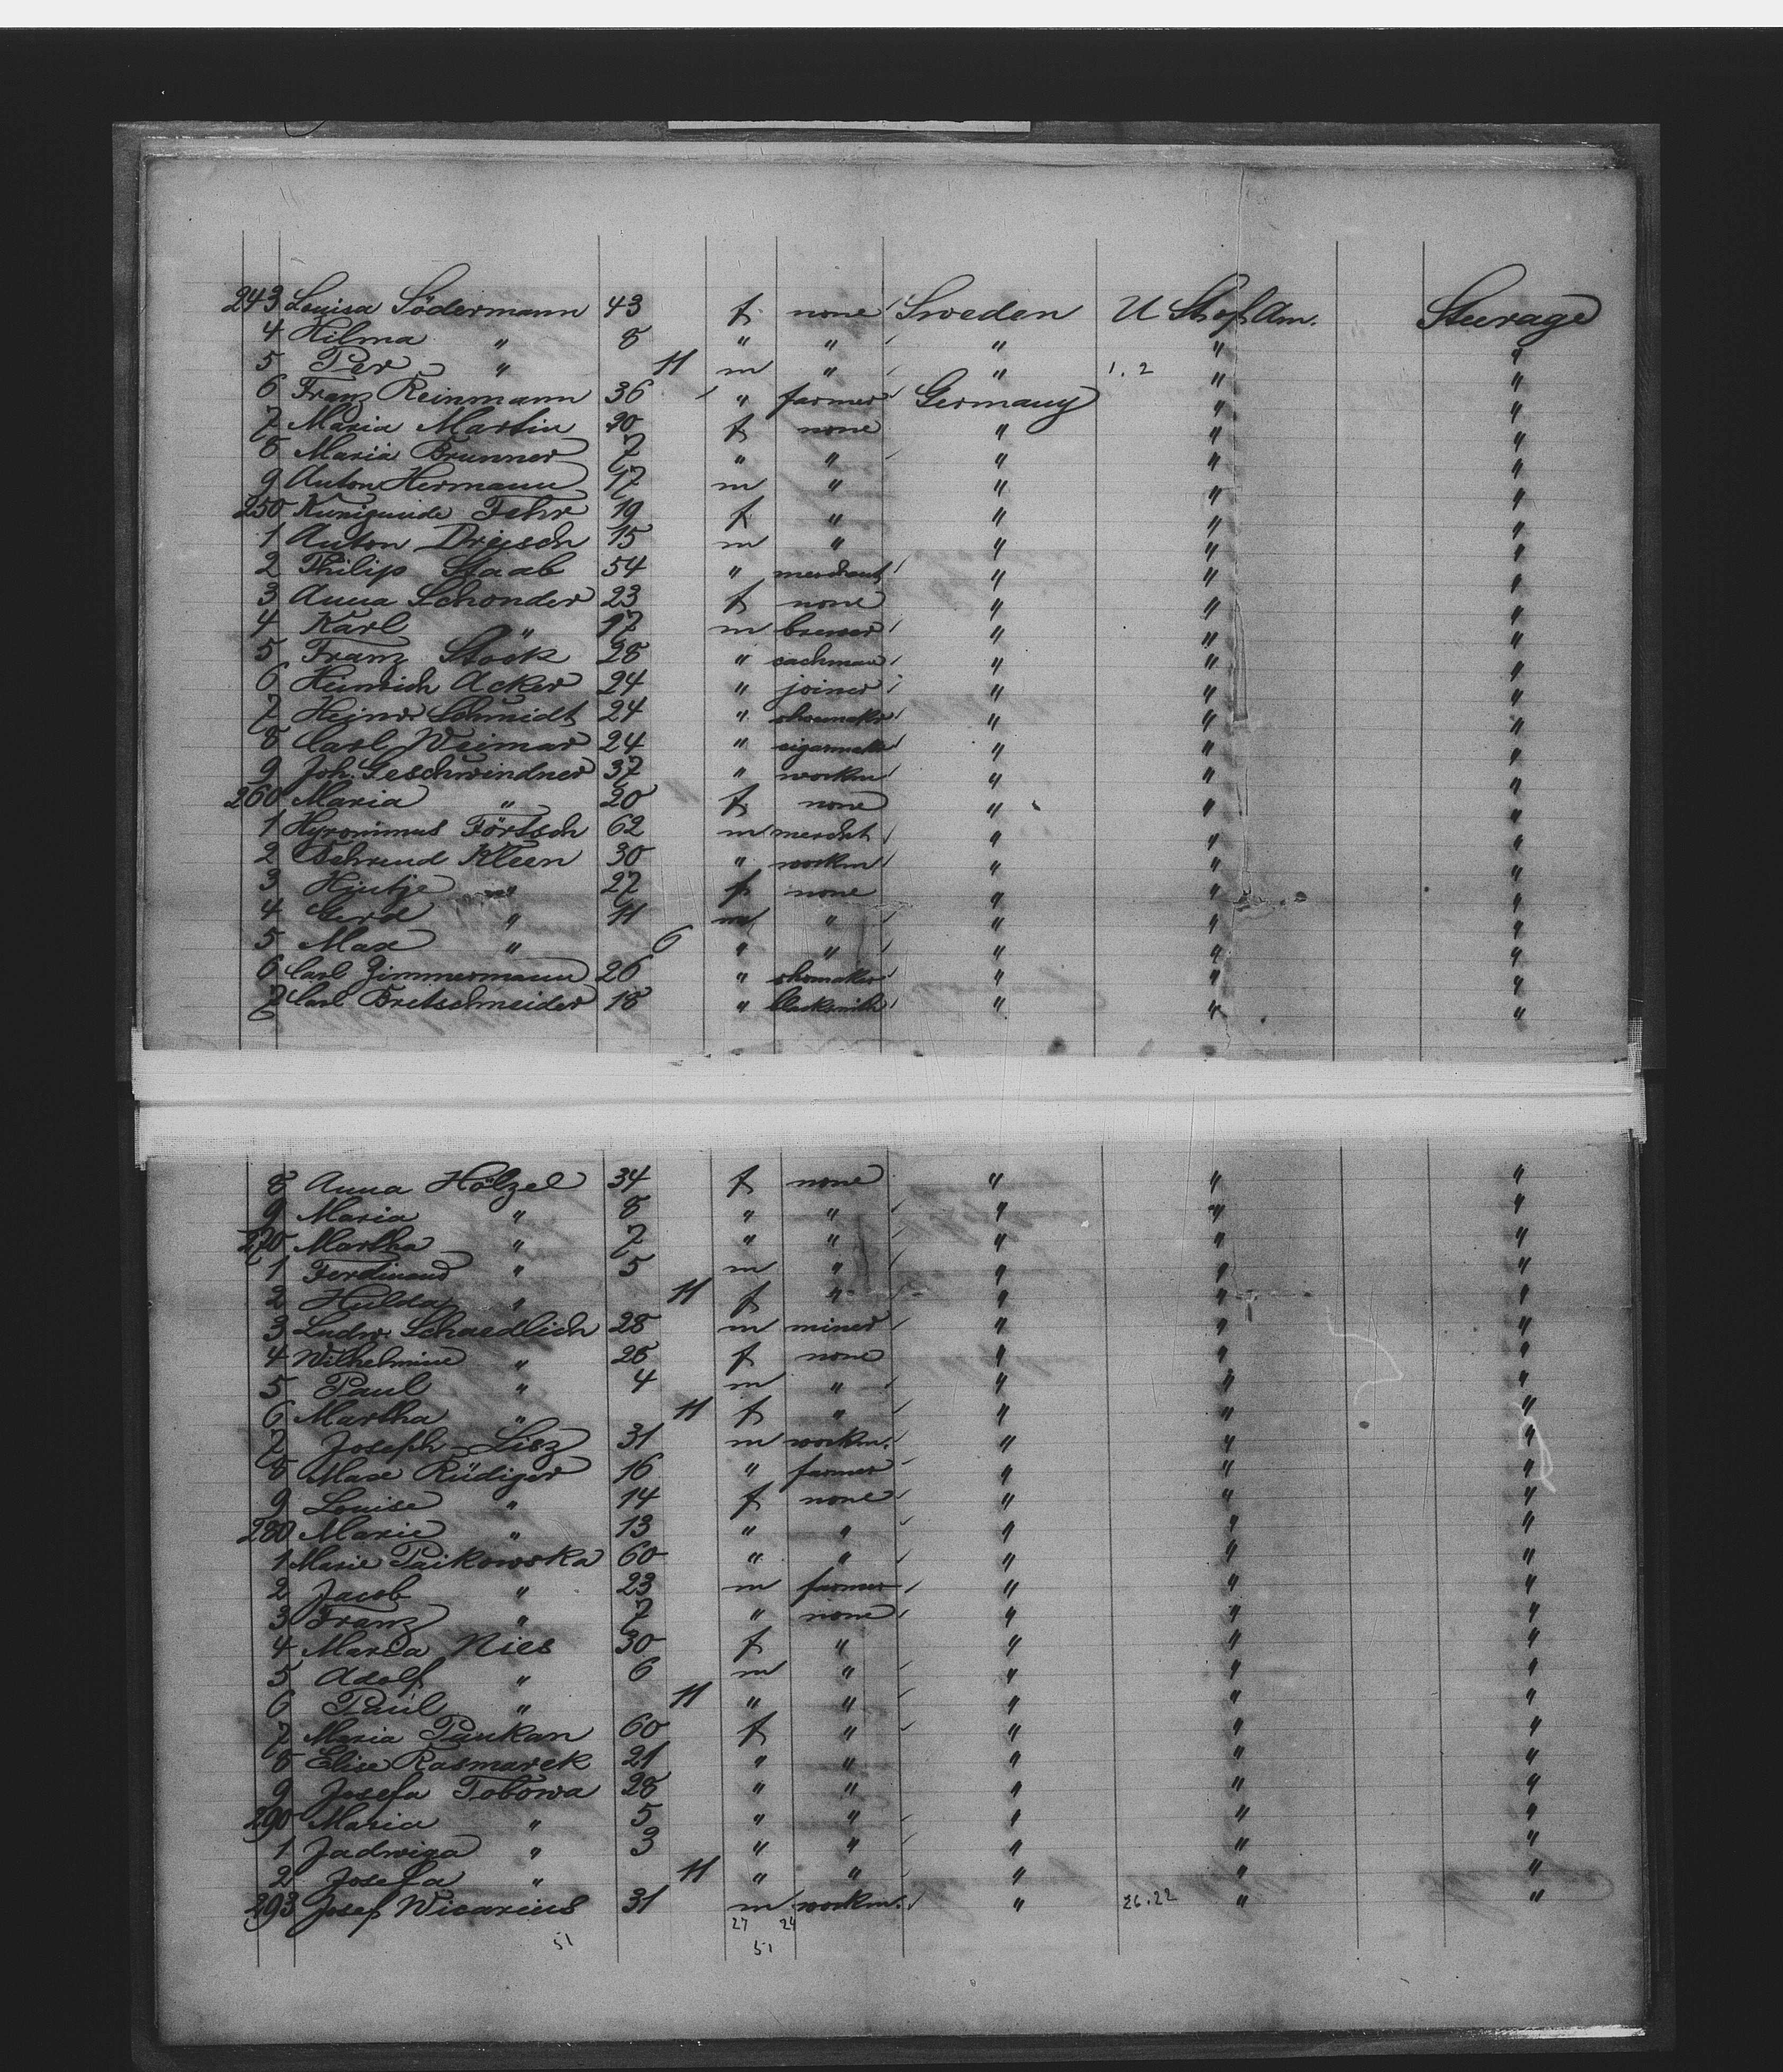 243 Louisa Södermann 43 f. none Sweden U St of Am. Steerage
4 Hilma " 8 " " " " "
5 Per " 11 m " " 1.2 " "
6 Franz Reinmann 36 " farmer Germany " "
7 Maria Martin 20 f none " " "
8 Maria Brunner 7 " " " " "
9 Anton Hermann 17 m " " " "
250 Kunigunde Fehr 19 f " " " "
1 Anton Driesch 15 m " " " "
2 Philip Staab 54 " merchant " " "
3 Anna Schonder 23 f none " " "
4 Karl " 17 m brewer " " "
5 Franz Stock 28 " cachman " " "
6 Heinrich Acker 24 " joiner " " "
7 Heinr. Schmidt 24 " shoemakr " " "
8 Carl Weimar 24 " cigarmakr " " "
9 Joh. Geschwindner 37 " workm " " "
260 Maria " 20 f none " " "
1 Hyronimus Förtsch 62 m mercht " " "
2 Behrend Kleen 30 " workm " " "
3 Hjutje " 27 f none " " "
4 Gerd " 11 m " " " "
5 Max " 6 " " " " "
6 Carl Zimmermann 26 " shomaker " " "
7 Carl Bretschneider 18 " blacksmith " " "
8 Anna Hölzel 34 f none " " "
9 Maria " 8 " " " " "
270 Martha " 7 " " " " "
1 Ferdinand " 5 m " " " "
2 Hulda " 11 f " " " "
3 Ludw. Schaedlich 28 m miner " " "
4 Wilhelmine " 28 f none " " "
5 Paul " 4 m " " " "
6 Martha " 11 f " " " "
7 Joseph Lisz 31 m workm. " " "
8 Max Rüdiger 16 " farmer " " "
9 Louise " 14 f none " " "
280 Marie " 13 " " " " "
1 Marie Paikowska 60 " " " " "
2 Jacob " 23 m farmer " " "
3 Franz " 7 " none " " "
4 Maria Nies 30 f " " " "
5 Adolf " 6 m " " " "
6 Paul " 11 " " " " "
7 Maria Paukan 60 f " " " "
8 Elise Rasmarek 21 " " " " "
9 Josefa Tobowa 28 " " " " "
290 Maria " 5 " " " " "
1 Jadwiga " 3 " " " " "
2 Josefa " 11 " " " " "
293 Josef Wicarius 31 m workm. " 26.22 " "
27 24
51 51